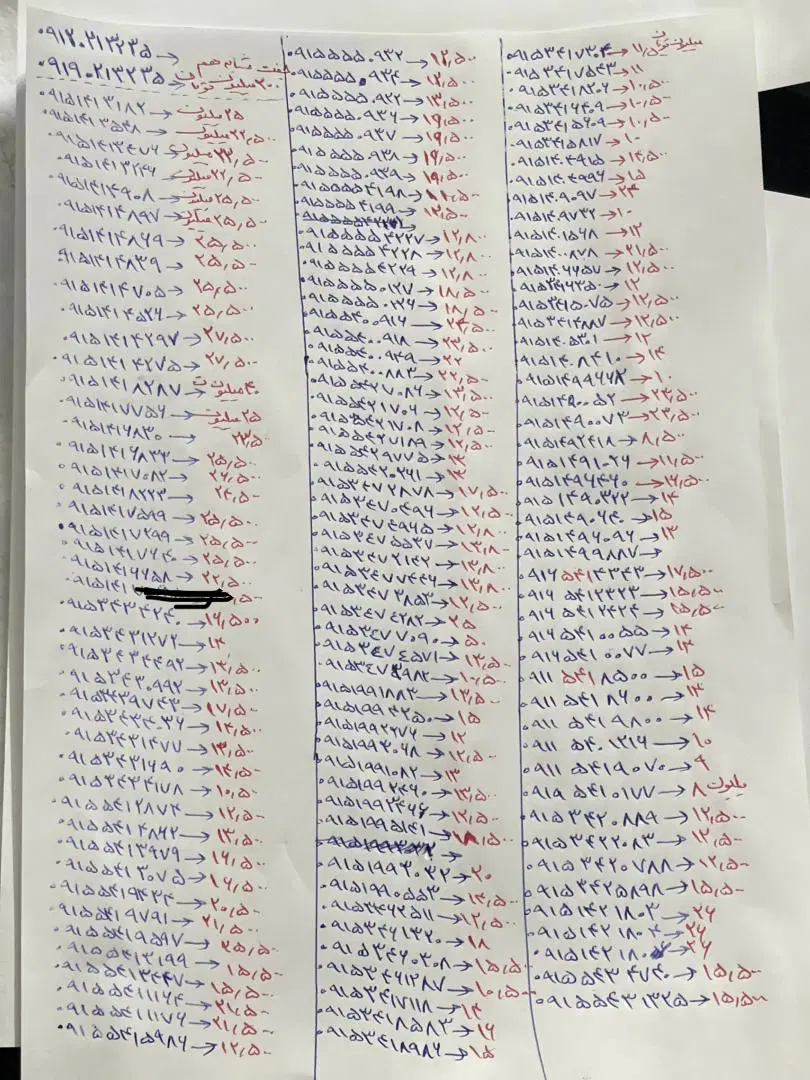 ۰۹۱۲۰۲۱۳۲۳۵ →
۰۹۱۹۰۲۱۳۲۳۵ → جفت شاد هم ۲۰۰ میلیون تومان
۰۹۱۵۱۴۱۳۱۸۲ → ۲۵ میلیون
۰۹۱۵۱۴۱۳۵۴۸ → ۲۲,۵۰۰ میلیون
۰۹۱۵۱۴۱۳۴۷۶ → ۲۳,۵۰۰ میلیون
۰۹۱۵۱۴۱۳۲۴۶ → ۲۲,۵۰۰ میلیون
۰۹۱۵۱۴۱۴۹۰۸ → ۲۵,۵۰۰ میلیون
۰۹۱۵۱۴۱۴۸۹۷ → ۲۵,۵۰۰ میلیون
۰۹۱۵۱۴۱۴۸۶۹ → ۲۵,۵۰۰
۰۹۱۵۱۴۱۴۸۳۹ → ۲۵,۵۰۰
۰۹۱۵۱۴۱۴۷۰۵ → ۲۵,۵۰۰
۰۹۱۵۱۴۱۴۵۲۶ → ۲۵,۵۰۰
۰۹۱۵۱۴۱۴۲۹۷ → ۲۷,۵۰۰
۰۹۱۵۱۴۱۴۲۷۵ → ۲۷,۵۰۰
۰۹۱۵۱۴۱۸۲۸۷ → ۴۰ میلیون ت
۰۹۱۵۱۴۱۷۷۵۶ → ۲۵ میلیون
۰۹۱۵۱۴۱۶۸۳۰ → ۲۳,۵۰۰
۰۹۱۵۱۴۱۶۸۳۳ → ۲۵,۵۰۰
۰۹۱۵۱۴۱۷۰۸۲ → ۲۶,۵۰۰
۰۹۱۵۱۴۱۸۲۲۳ → ۲۴,۵۰۰
۰۹۱۵۱۴۱۷۵۹۹ → ۲۵,۵۰۰
۰۹۱۵۱۴۱۷۲۹۹ → ۲۵,۵۰۰
۰۹۱۵۱۴۱۷۶۴۰ → ۲۵,۵۰۰
۰۹۱۵۱۴۱۶۶۵۸ → ۲۲,۵۰۰
۰۹۱۵۳۴۳۴۲۴۰ → ۱۶,۵۰۰
۰۹۱۵۳۴۳۱۲۷۲ → ۱۴
۰۹۱۵۳۴۳۴۴۹۲ → ۱۳,۵۰۰
۰۹۱۵۳۴۳۰۹۹۲ → ۱۳,۵۰۰
۰۹۱۵۳۴۳۹۷۴۳ → ۱۷,۵۰۰
۰۹۱۵۳۴۳۴۰۳۶ → ۱۴,۵۰۰
۰۹۱۵۳۴۳۱۴۷۷ → ۱۳,۵۰۰
۰۹۱۵۳۴۳۱۶۹۰ → ۱۴,۵۰۰
۰۹۱۵۳۴۳۴۱۷۸ → ۱۰,۵۰۰
۰۹۱۵۵۴۱۲۸۷۴ → ۱۲,۵۰۰
۰۹۱۵۵۴۱۴۸۶۲ → ۱۳,۵۰۰
۰۹۱۵۵۴۱۳۹۷۹ → ۱۶,۵۰۰
۰۹۱۵۵۴۱۳۰۷۵ → ۱۶,۵۰۰
۰۹۱۵۵۴۱۹۴۳۴ → ۲۰,۵۰۰
۰۹۱۵۵۴۱۹۷۹۱ → ۲۱,۵۰۰
۰۹۱۵۵۴۱۹۵۹۷ → ۲۵,۵۰۰
۰۹۱۵۵۴۱۳۱۹۹ → ۱۵,۵۰۰
۰۹۱۵۵۴۱۳۴۴۷ → ۱۵,۵۰۰
۰۹۱۵۵۴۱۱۱۶۴ → ۲۱,۵۰۰
۰۹۱۵۵۴۱۱۱۷۶ → ۲۱,۵۰۰
۰۹۱۵۵۴۱۵۹۸۶ → ۱۲,۵۰۰
۰۹۱۵۵۵۵۰۹۳۲ → ۱۲,۵۰۰
۰۹۱۵۵۵۵۰۹۲۴ → ۱۲,۵۰۰
۰۹۱۵۵۵۵۰۹۲۲ → ۱۳,۵۰۰
۰۹۱۵۵۵۵۰۹۳۶ → ۱۹,۵۰۰
۰۹۱۵۵۵۵۰۹۳۷ → ۱۹,۵۰۰
۰۹۱۵۵۵۵۰۹۳۸ → ۱۹,۵۰۰
۰۹۱۵۵۵۵۰۹۳۹ → ۱۹,۵۰۰
۰۹۱۵۵۵۵۴۱۹۸ → ۱۲,۵۰۰
۰۹۱۵۵۵۵۴۱۹۹ → ۱۲,۵۰۰
۰۹۱۵۵۵۵۴۲۲۷ → ۱۲,۸۰۰
۰۹۱۵۵۵۵۴۲۲۸ → ۱۲,۸۰۰
۰۹۱۵۵۵۵۴۲۲۹ → ۱۲,۸۰۰
۰۹۱۵۵۵۵۰۱۲۷ → ۱۸,۵۰۰
۰۹۱۵۵۵۵۰۱۲۶ → ۱۸,۵۰۰
۰۹۱۵۵۴۰۰۹۱۶ → ۲۴,۵۰۰
۰۹۱۵۵۴۰۰۹۱۸ → ۲۳,۵۰۰
۰۹۱۵۵۴۰۰۹۴۹ → ۲۲
۰۹۱۵۵۴۰۰۸۸۳ → ۲۲,۵۰۰
۰۹۱۵۵۴۲۷۰۸۶ → ۱۳,۵۰۰
۰۹۱۵۵۴۲۱۷۰۶ → ۱۲,۵۰۰
۰۹۱۵۵۴۲۱۷۰۸ → ۱۲,۵۰۰
۰۹۱۵۵۴۲۷۱۸۹ → ۱۲,۵۰۰
۰۹۱۵۵۴۲۹۷۷۵ → ۱۳
۰۹۱۵۵۴۲۰۲۶۱ → ۱۳
۰۹۱۵۳۴۷۲۸۷۸ → ۱۷,۵۰۰
۰۹۱۵۳۴۷۰۴۹۶ → ۱۳,۵۰۰
۰۹۱۵۳۴۷۴۹۶۵ → ۱۲,۸۰۰
۰۹۱۵۳۴۷۵۵۳۷ → ۱۳,۸۰۰
۰۹۱۵۳۴۷۲۱۴۲ → ۱۳,۸۰۰
۰۹۱۵۳۴۷۷۴۴۶ → ۱۳,۸۰۰
۰۹۱۵۳۴۷۳۸۵۳ → ۱۲,۵۰۰
۰۹۱۵۳۴۷۴۲۸۲ → ۲۵
۰۹۱۵۳۴۷۷۰۹۰ → ۵۰
۰۹۱۵۳۴۷۴۵۷۱ → ۱۳,۵۰۰
۰۹۱۵۳۴۷۳۹۸۲ → ۱۰,۵۰۰
۰۹۱۵۱۹۹۱۸۸۳ → ۱۳,۵۰۰
۰۹۱۵۱۹۹۴۲۵۰ → ۱۵
۰۹۱۵۱۹۹۲۲۷۶ → ۱۲
۰۹۱۵۱۹۹۳۰۶۸ → ۱۲,۵۰۰
۰۹۱۵۱۹۹۱۰۸۲ → ۱۳
۰۹۱۵۱۹۹۲۴۶۰ → ۱۳,۵۰۰
۰۹۱۵۱۹۹۳۴۶۶ → ۱۲,۵۰۰
۰۹۱۵۱۹۹۵۱۴۱ → ۱۸,۵۰۰
۰۹۱۵۱۹۹۳۰۳۲ → ۲۰
۰۹۱۵۱۹۹۰۵۵۳ → ۱۴,۵۰۰
۰۹۱۵۳۴۶۲۵۱۱ → ۱۲,۵۰۰
۰۹۱۵۳۴۶۱۳۲۰ → ۱۸
۰۹۱۵۳۴۶۰۲۰۸ → ۱۵,۵۰۰
۰۹۱۵۳۴۶۱۲۸۷ → ۱۰,۵۰۰
۰۹۱۵۳۴۱۷۱۱۸ → ۱۴
۰۹۱۵۳۴۱۸۵۸۳ → ۱۶
۰۹۱۵۳۴۱۸۹۸۶ → ۱۵
۰۹۱۵۳۴۱۷۳۰۴ → ۱۱,۵۰۰ میلیون تومان
۰۹۱۵۳۴۱۷۵۴۳ → ۱۱
۰۹۱۵۳۴۱۸۲۰۶ → ۱۰,۵۰۰
۰۹۱۵۳۴۱۶۴۰۹ → ۱۰,۵۰۰
۰۹۱۵۳۴۱۵۶۰۹ → ۱۰,۵۰۰
۰۹۱۵۳۴۱۵۸۱۷ → ۱۰
۰۹۱۵۱۴۰۴۹۱۵ → ۱۴,۵۰۰
۰۹۱۵۱۴۰۴۹۹۶ → ۱۵
۰۹۱۵۱۴۰۹۰۹۷ → ۲۴
۰۹۱۵۱۴۹۷۳۲ → ۱۰
۰۹۱۵۱۴۰۱۵۶۸ → ۱۲
۰۹۱۵۱۴۰۰۸۷۸ → ۲۱,۵۰۰
۰۹۱۵۱۴۰۶۶۵۷ → ۱۲,۵۰۰
۰۹۱۵۳۴۱۶۲۵۰ → ۱۲
۰۹۱۵۳۴۱۵۰۷۵ → ۱۲,۵۰۰
۰۹۱۵۳۴۱۴۸۸۷ → ۱۲,۵۰۰
۰۹۱۵۱۴۰۵۳۰۱ → ۱۲
۰۹۱۵۱۴۰۸۴۱۰ → ۱۴
۰۹۱۵۱۴۹۴۶۶۲ → ۱۰
۰۹۱۵۱۴۹۰۰۵۲ → ۲۳,۵۰۰
۰۹۱۵۱۴۹۰۰۷۳ → ۲۳,۵۰۰
۰۹۱۵۱۴۹۲۴۱۸ → ۸,۵۰۰
۰۹۱۵۱۴۹۱۰۲۶ → ۱۱,۵۰۰
۰۹۱۵۱۴۹۴۶۴۰ → ۱۲,۵۰۰
۰۹۱۵۱۴۹۰۳۲۲ → ۱۴
۰۹۱۵۱۴۹۰۶۴۰ → ۱۵
۰۹۱۵۱۴۹۶۰۹۶ → ۱۳
۰۹۱۵۱۴۹۹۸۸۷ →
۰۹۱۶ ۵۴۱۴۳۴۳ → ۱۷,۵۰۰
۰۹۱۶ ۵۴۱۲۳۲۳ → ۱۵,۵۰۰
۰۹۱۶ ۵۴۱۲۴۲۴ → ۱۵,۵۰۰
۰۹۱۶ ۵۴۱۰۰۵۵ → ۱۴
۰۹۱۶ ۵۴۱۰۰۷۷ → ۱۴
۰۹۱۱ ۵۴۱۸۵۰۰ → ۱۵
۰۹۱۱ ۵۴۱۸۶۰۰ → ۱۴
۰۹۱۱ ۵۴۱۹۸۰۰ → ۱۴
۰۹۱۱ ۵۴۰۱۲۱۶ → ۱۰
۰۹۱۱ ۵۴۱۹۰۷۰ → ۹
۰۹۱۹ ۵۴۱۰۱۷۷ → ۸ میلیون
۰۹۱۵۳۴۲۰۸۸۹ → ۱۲,۵۰۰
۰۹۱۵۳۴۲۲۰۸۳ → ۱۲,۵۰۰
۰۹۱۵۳۴۲۰۷۸۸ → ۱۲,۵۰۰
۰۹۱۵۳۴۲۵۸۹۸ → ۱۵,۵۰۰
۰۹۱۵۱۴۲۱۸۰۳ → ۲۶
۰۹۱۵۱۴۲۱۸۰۴ → ۲۶
۰۹۱۵۱۴۲۱۸۰۲ → ۲۶
۰۹۱۵۵۴۳۴۷۴۰ → ۱۵,۵۰۰
۰۹۱۵۵۴۳۱۳۲۵ → ۱۵,۵۰۰